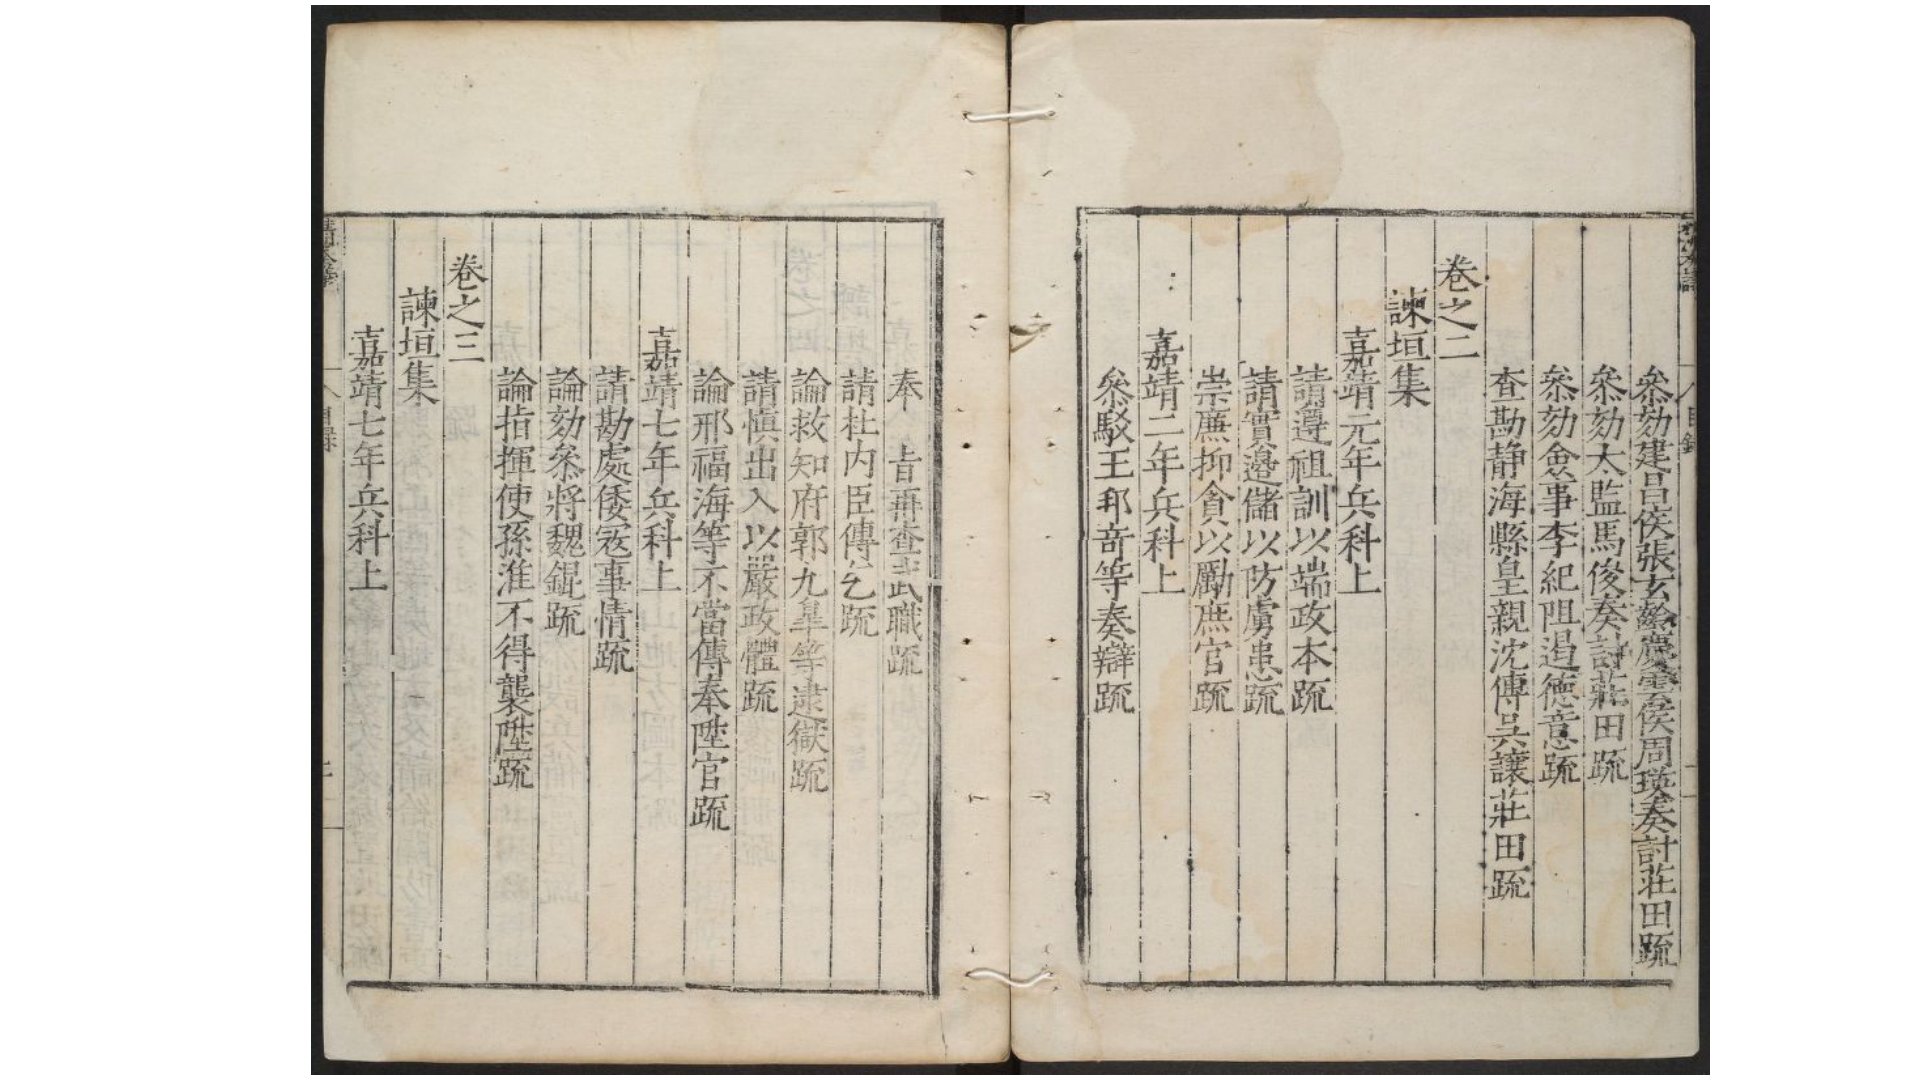 叅劾建昌侯張玄齡慶雲侯周瑛奏討莊田疏
叅劾太監馬俊奏討莊田疏
叅劾僉事李紀阻遏德意疏
查勘静海縣皇親沈傳吳讓莊田疏
卷之二
諫垣集
嘉靖元年兵科上
請遵祖訓以端政本疏
請實邊儲以防虜患疏
崇廉抑貪以勵庶官疏
嘉靖二年兵科上
叅駁王邦竒等奏辯疏
奉旨再查武職疏
請杜内臣傳乞疏
論救知府郭九臯等逮獄疏
請慎出入以嚴政體疏
論邢福海等不當傳奉陞官疏
嘉靖七年兵科上
請勘處倭寇事情疏
論劾叅將魏錕疏
論指揮使孫淮不得襲陞疏
卷之三
諫垣集
嘉靖七年兵科上